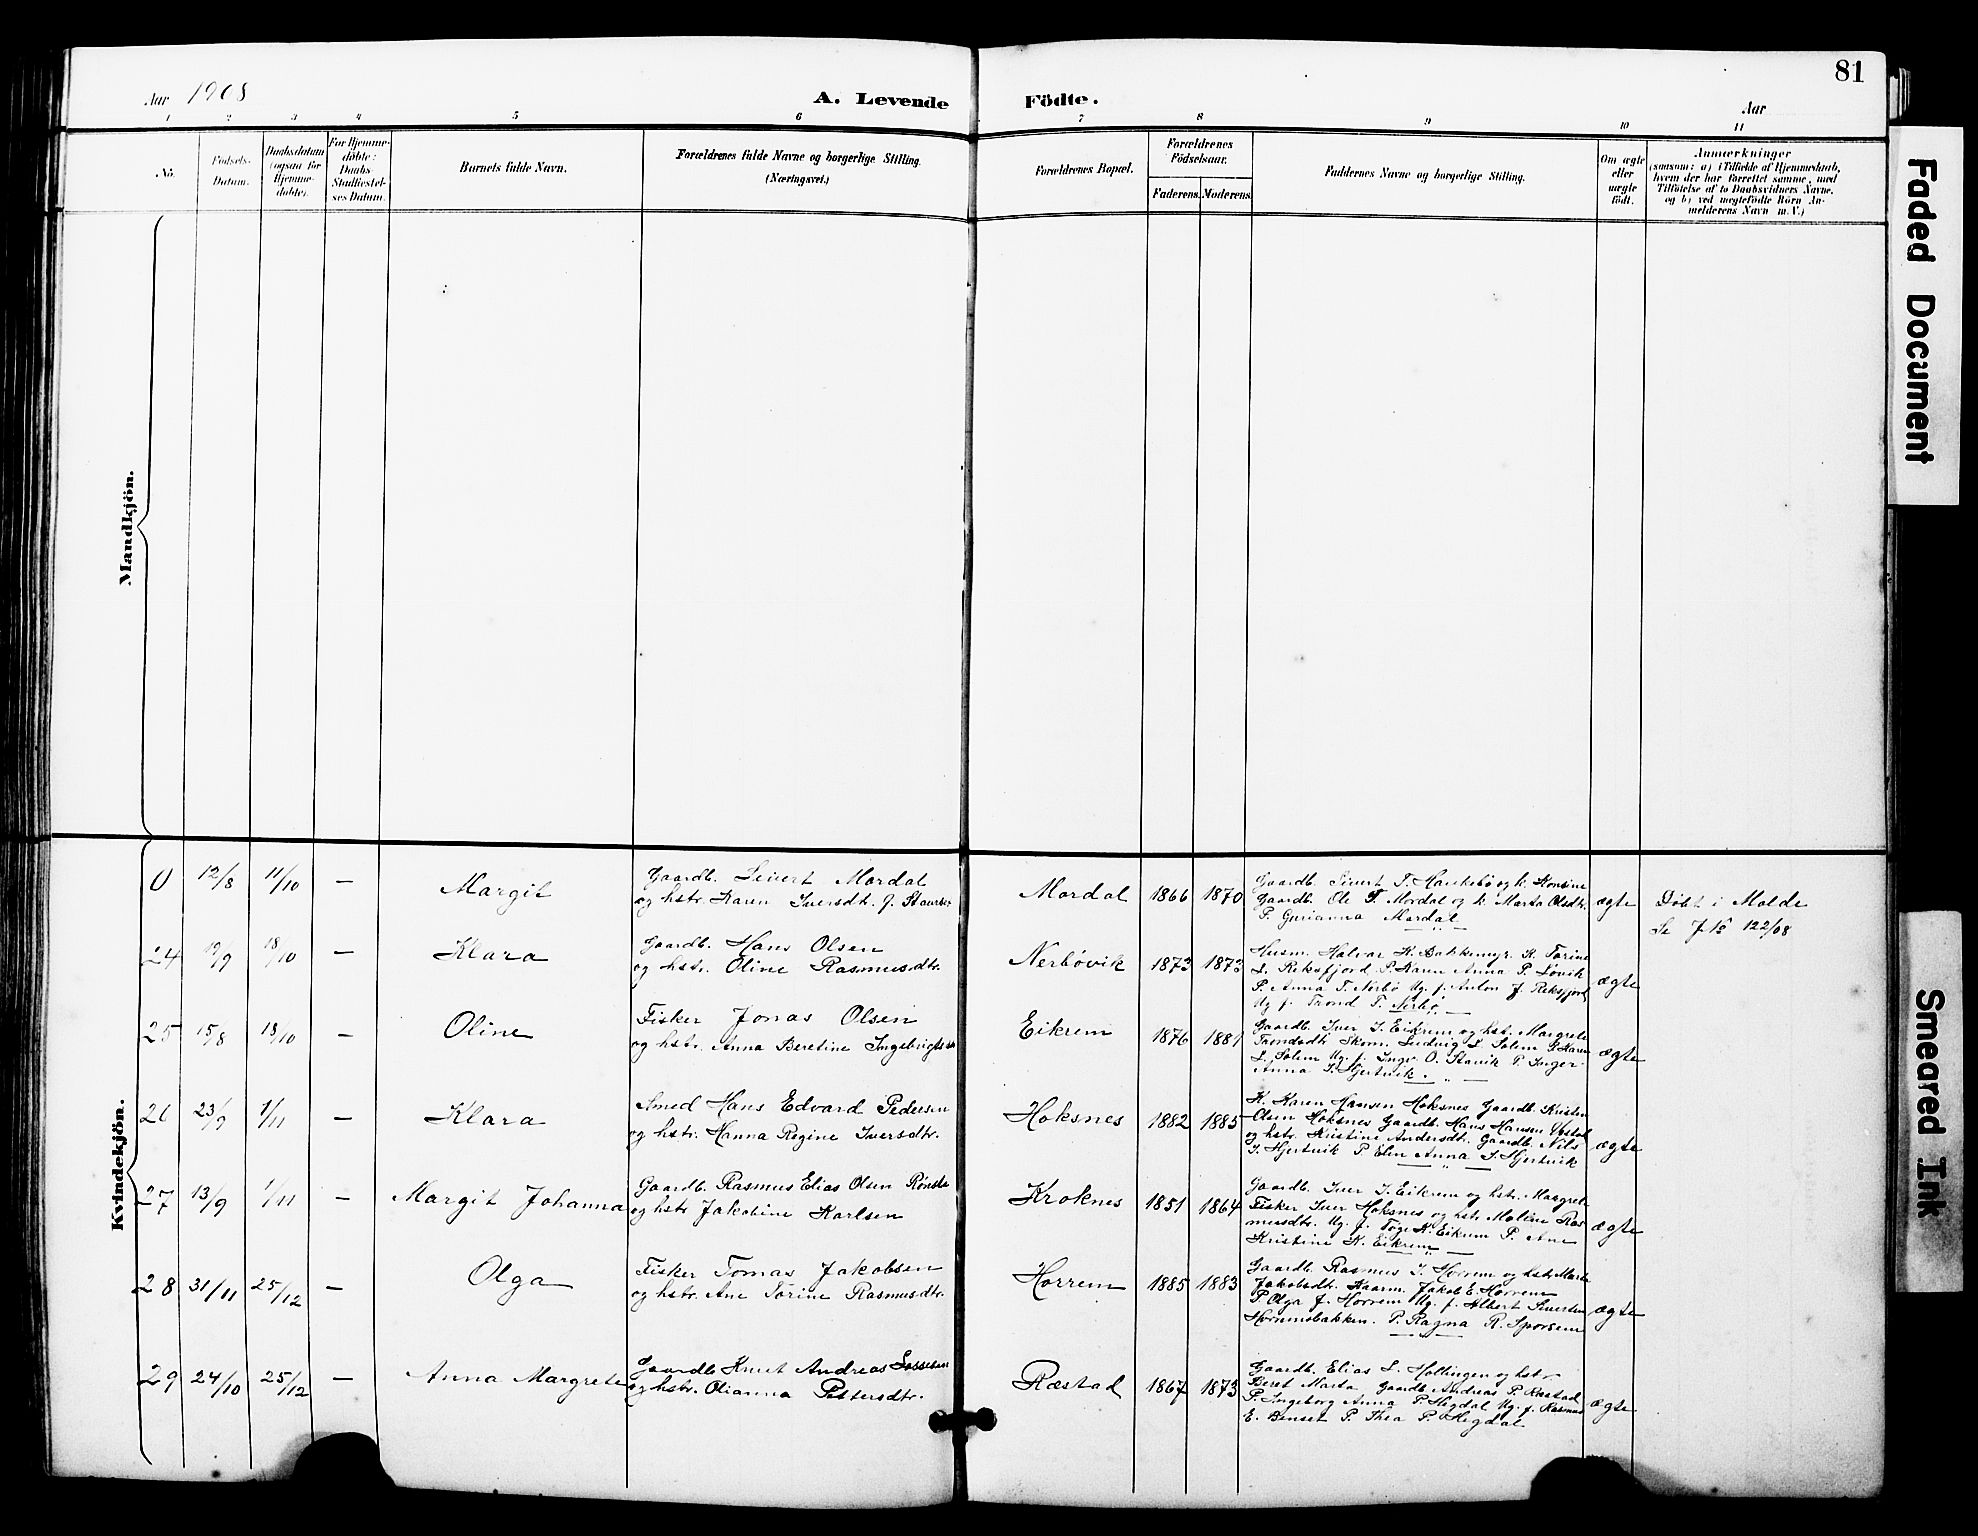 81
Aar 1908
A. Levende Födte.
Aar
1 2 3 4 5 6 7 8 9 10 11
No.
Födsels-Datum.
Daabsdatum (ogsaa for Hjemme-döbte).
For Hjemme-döbte: Daabs-Stadfæstel-ses Datum.
Barnets fulde Navn.
Forældrenes fulde Navne og borgerlige Stilling. (Næringsvei.)
Forældrenes Bopæl.
Forældrenes Födselsaar.
Faderens. Moderens.
Faddernes Navne og borgerlige Stilling.
Om ægte eller uægte födt.
Anmærkninger
(saasom: a) i Tilfælde af Hjemmedaab, hvem der har forrettet samme, med Tilföielse af to Daabsvidners Navne, og b) ved uægtefödte Börn An-melderens Navn m. V.)
Mandkjön.
Kvindekjön.
0 12/8 11/10 — Margit
Gaardb. Sivert Mordal
og hstr. Karen Iversdtr. f.
Mordal 1866 1870
Gaardb. Sivert T.
Gaardb. Ole T. Mordal og k. Marta Olsdtr.
P. Gurianna Mordal
ægte
Döbt i Molde
Se J No 122/08
24 19/9 18/10 — Klara
Gaardb. Hans Olsen
og hstr. Oline Rasmusdtr.
Nerbövik 1873 1873
Husm. Halvar K. Bakkemyr. K. Torine
L. Reksfjord P. Karen Anna P. Lövik
P. Anna T. Nerbö Ug. f. Anton J. Reksfjord
Ug f. Trond T. Nerbö
ægte
25 15/8 18/10 — Oline
Fisker Jonas Olsen
og hstr. Anna Beretine Ingebrigtsdtr
Eikrem 1876 1881
Gaardb. Iver I. Eikrem og hst. Margrete
Trondsdtr. Skom. Ludvig L Solem P. Karen
L. Solem Ug. f. Ingv. O. Stavik P. Inger
Anna I. Hjertvik.
ægte
26 23/9 1/11 — Klara
Smed Hans Edvard Pedersen
og hstr. Hanna Regine Iversdtr.
Hoksnes 1882 1885
K. Karen Hansen Hoksnes Gaardb. Kristen
Olsen Hoksnes Gaardb. Hans Hansen
og hstr. Kristine Andersdtr. Gaardb. Nils
I. Hjertvik P. Elen Anna I. Hjertvik
ægte
27 13/9 1/11 — Margit Johanna
Gaardb. Rasmus Elias Olsen
og hstr Jakobine Karlsen
Kroknes 1851 1864
Gaardb. Iver I. Eikrem og hstr. Margrete
Fisker Iver Hoksnes og hstr Moline Ras
musdtr. Ug. f. Töge K. Eikrem P. Ane
Kristine K. Eikrem
ægte
28 31/11 25/12 — Olga
Fisker Tomas Jakobsen
og hstr. Ane Torine Rasmusdtr.
Horrem 1885 1883
Gaardb. Rasmus I. Horrem og hstr Marte
Jakobsdtr. Kaarm. Jakob E. Horrem
P Olga J. Horrem Ug. f. Albert Sivertsen
Horremsbakken. P. Ragna R. Sporsem
ægte
29 24/10 25/12 — Anna Margrete
Gaardb Knut Andreas Lassesen
og hstr. Olianna Pettersdtr.
Ræstad 1867 1873
Gaardb. Elias L. Hollingen og hstr
Beret Marta Gaardb. Andreas P. Ræstad
P. Ingeborg Anna P. Hegdal Ug. f. Rasmus
E. Benset P. Thea P. Hegdal
ægte
Faded Document
Smeared Ink